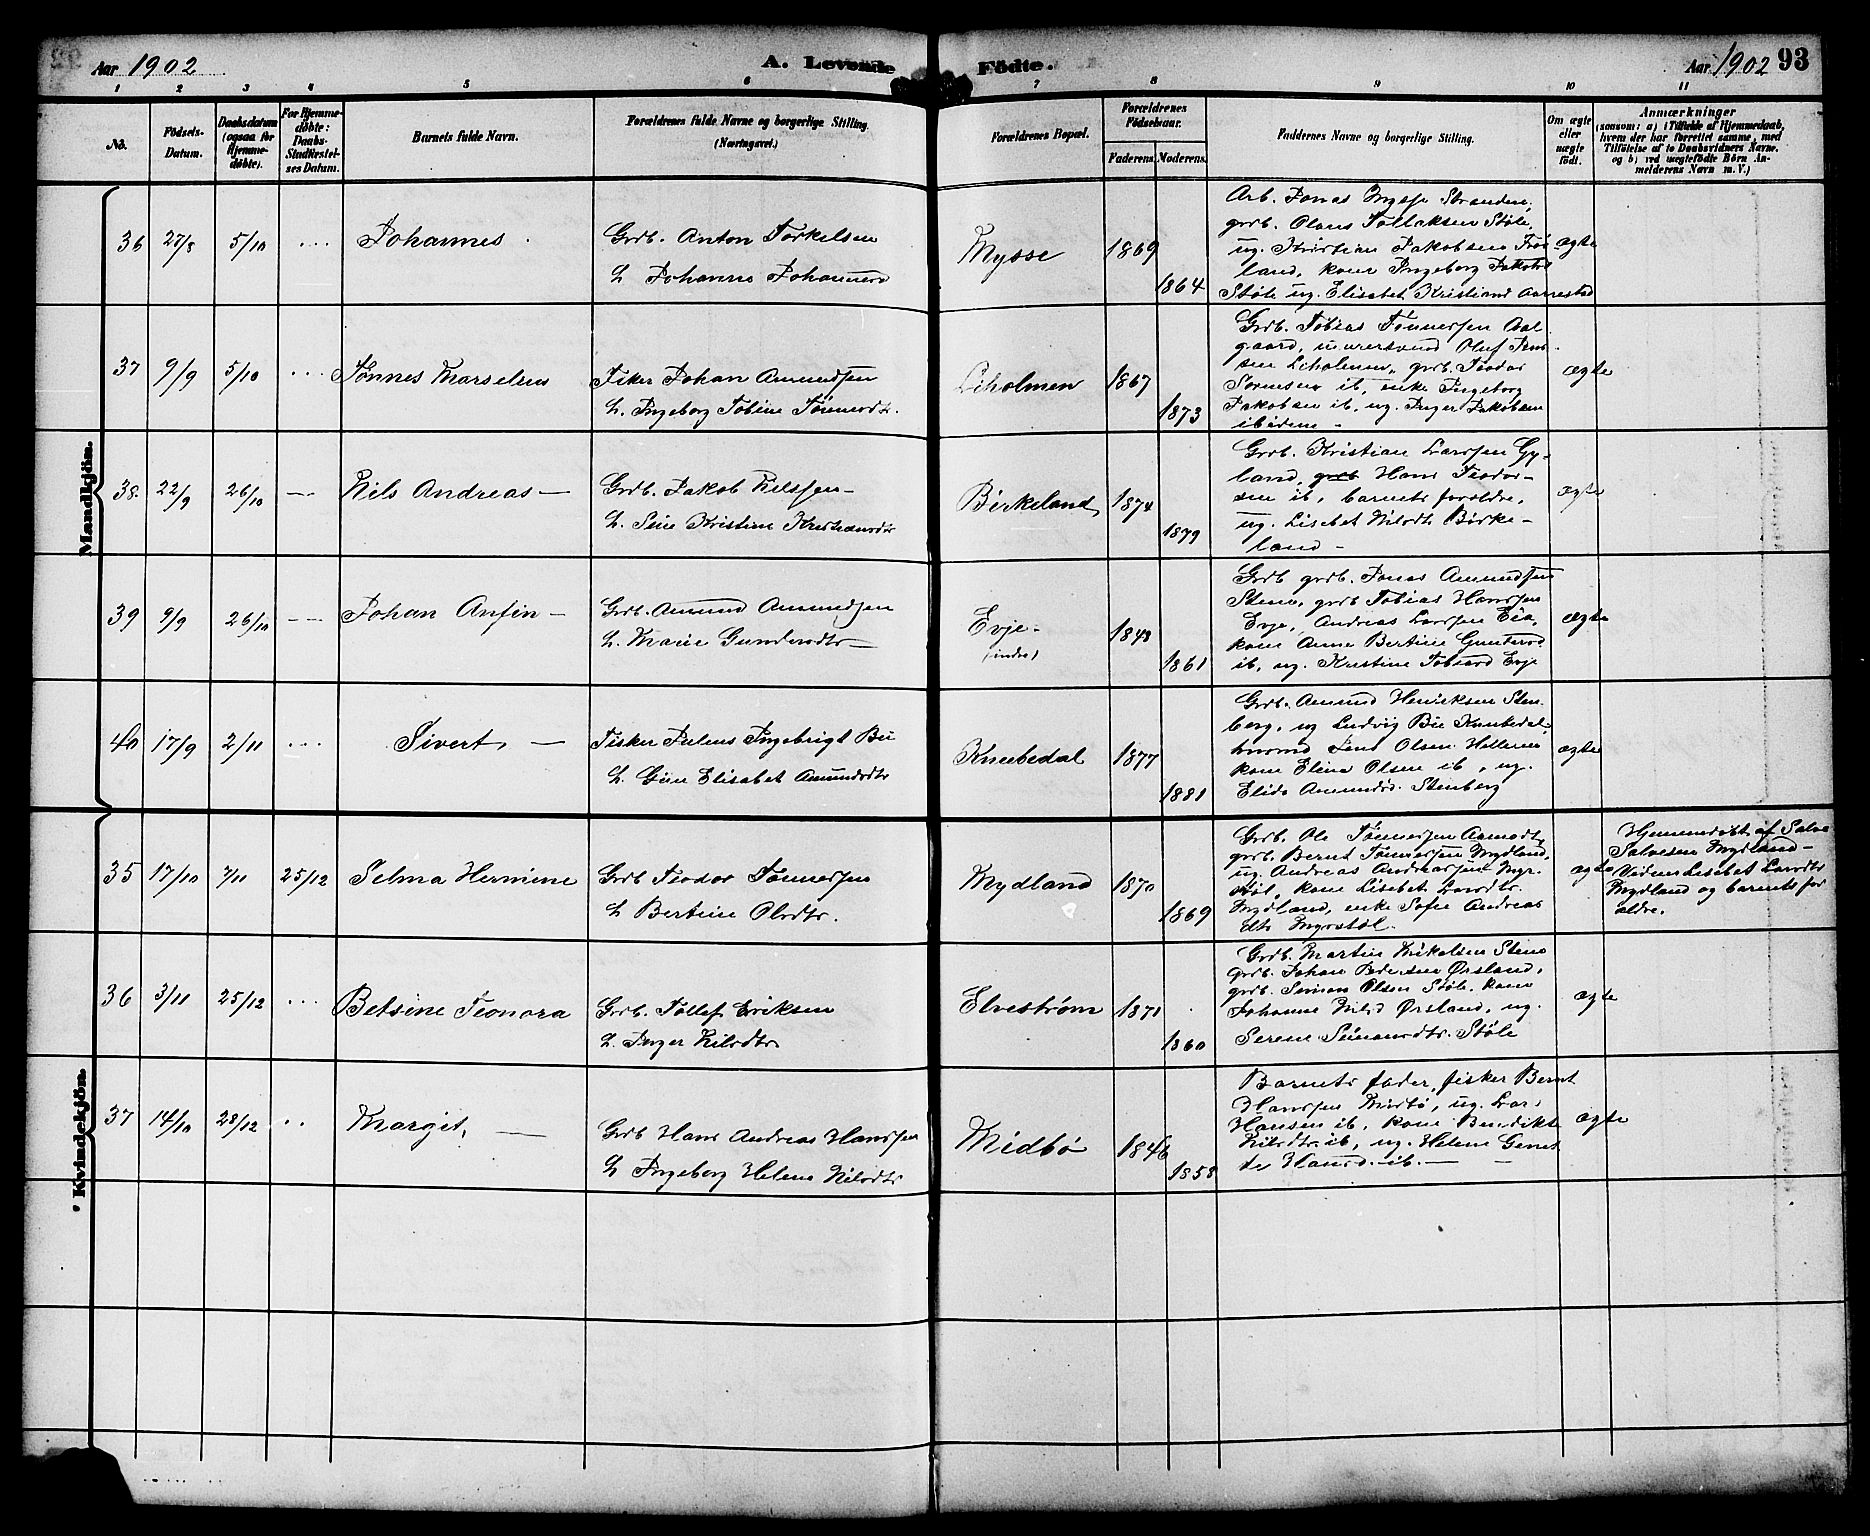 Aar 1902
A. Levende Födte.
Aar 1902 93
1 2 3 4 5 6 7 8 9 10 11
No.
Födsels-
Datum.
Daabsdatum
(ogsaa for
Hjemme-
døbte).
For Hjemme-
døbte:
Daabs-
Stadfæstel-
ses Datum.
Barnets fulde Navn.
Forældrenes fulde Navne og borgerlige Stilling.
(Næringsvei.)
Forældrenes Bopæl.
Forældrenes
Födselsaar.
Faderens. Moderens.
Faddernes Navne og borgerlige Stilling.
Om ægte
eller
uægte
født.
Anmærkninger
(saasom: a) i Tilfælde af Hjemmedaab,
hvem der har forrettet samme, med
Tilføielse af to Daabsvidners Navne.
og b) ved uægtefødte Børn An-
melderens Navn m. V.)
Mandkjön.
36 27/8 5/10 ... Johannes
Grdb. Anton Torkelsen
h. Johanne Johannesd
Mysse 1869
1864
Arb. Jonas Mysse Stranden,
grdb. Olaus Tollaksen Støle,
ug. Kristian Jakobsen Frø
land, kone Ingeborg Jakobsd
Støle ug. Elisabet Kristiansd Aarrestad
ægte
37 9/9 5/10 ... Tønnes Marselius
Fisker Johan Amundsen
h. Ingeborg Tobine Tønnesdtr.
Liholmen 1867
1873
Grdb. Tobias Tønnessen Aal
gaard, murersvend Oluf Jens
sen Liholmen, grdb. Teodor
Sørensen ib, enke Ingeborg
Jakobsen ib, ug. Inger Jakobsen
ibidem -
ægte
38. 22/9 26/10 --- Nils Andreas -
Grdb. Jakob Nilssen -
h. Sine Kristine Kristiansdtr
Birkeland 1874
1879
Grdb. Kristian Larssen Gy-
land, grdb Hans Teodor-
sen ib, barnets forældre,
ug. Lisebet Nilsdtr Birke-
land -
ægte
39 9/9 26/10 --- Johan Anfin -
Grdb. Amund Amundsen
h. Marie Gundersdtr -
Evje -
(indre)
1848
1861
Grdb grdb. Jonas Amundsen
Stene, grdb Tobias Hanssen
Evje, Andreas Larssen Eia,
kone Anne Bertine Guntersd
ib, ug. Kristine Tobiasd Evje
ægte
40 17/9 2/11 ... Sivert, -
Fisker Julius Ingebrigt Bu
h. Gine Elisabet Amundsdtr
Knubedal 1877
1881
Grdb. Amund Henriksen Sten
berg, ug Ludvig Bu Knubedal,
Jens Olsen Helleren
kone Elina Olsen ib, ug.
Elida Amundsd. Stenberg
ægte
Kvindekjön.
35 17/10 7/11 25/12 Selma Hermine
Grdb Teodor Tønnessen
h Bertine Olsdtr.
Mydland 1870
1869
Grdb. Ole Tønnessen Aamodt,
grdb. Bernt Tønnessen Mydland,
ug. Andreas Andreassen Myr-
støl, kone Lisebet Larsdtr.
Mydland, enke Sofie Andreas
dtr Myrstøl.
ægte
Hjemmedøbt af Salve
Salvesen Mydland -
Vidner Lisebet Larsdtr
Mydland og barnets for
ældre.
36 3/11 25/12 ... Betsine Teonora
Grdb. Tollef Eriksen
h. Inger Nilsdtr
Elvestrøm 1871
1860
Grdb. Martin Mikalsen Stene
grdb. Johan Pedersen Ørsland,
grdb. Simon Olsen Støle. kone
Johanne Nilsd Ørsland, ug.
Serene Simonsdtr. Støle
ægte
37 14/10 28/12 .. Margit, -
Grdb Hans Andreas Hanssen
h Ingeborg Helene Nilsdtr
Midbø 1846
1858
Barnets fader, fisker Bernt
Hanssen Midbø, ug. Lars
Hansen ib, kone Benedikte
Nilsdtr ib, ug. Helene Gunet
te Hansd. ib. -
ægte